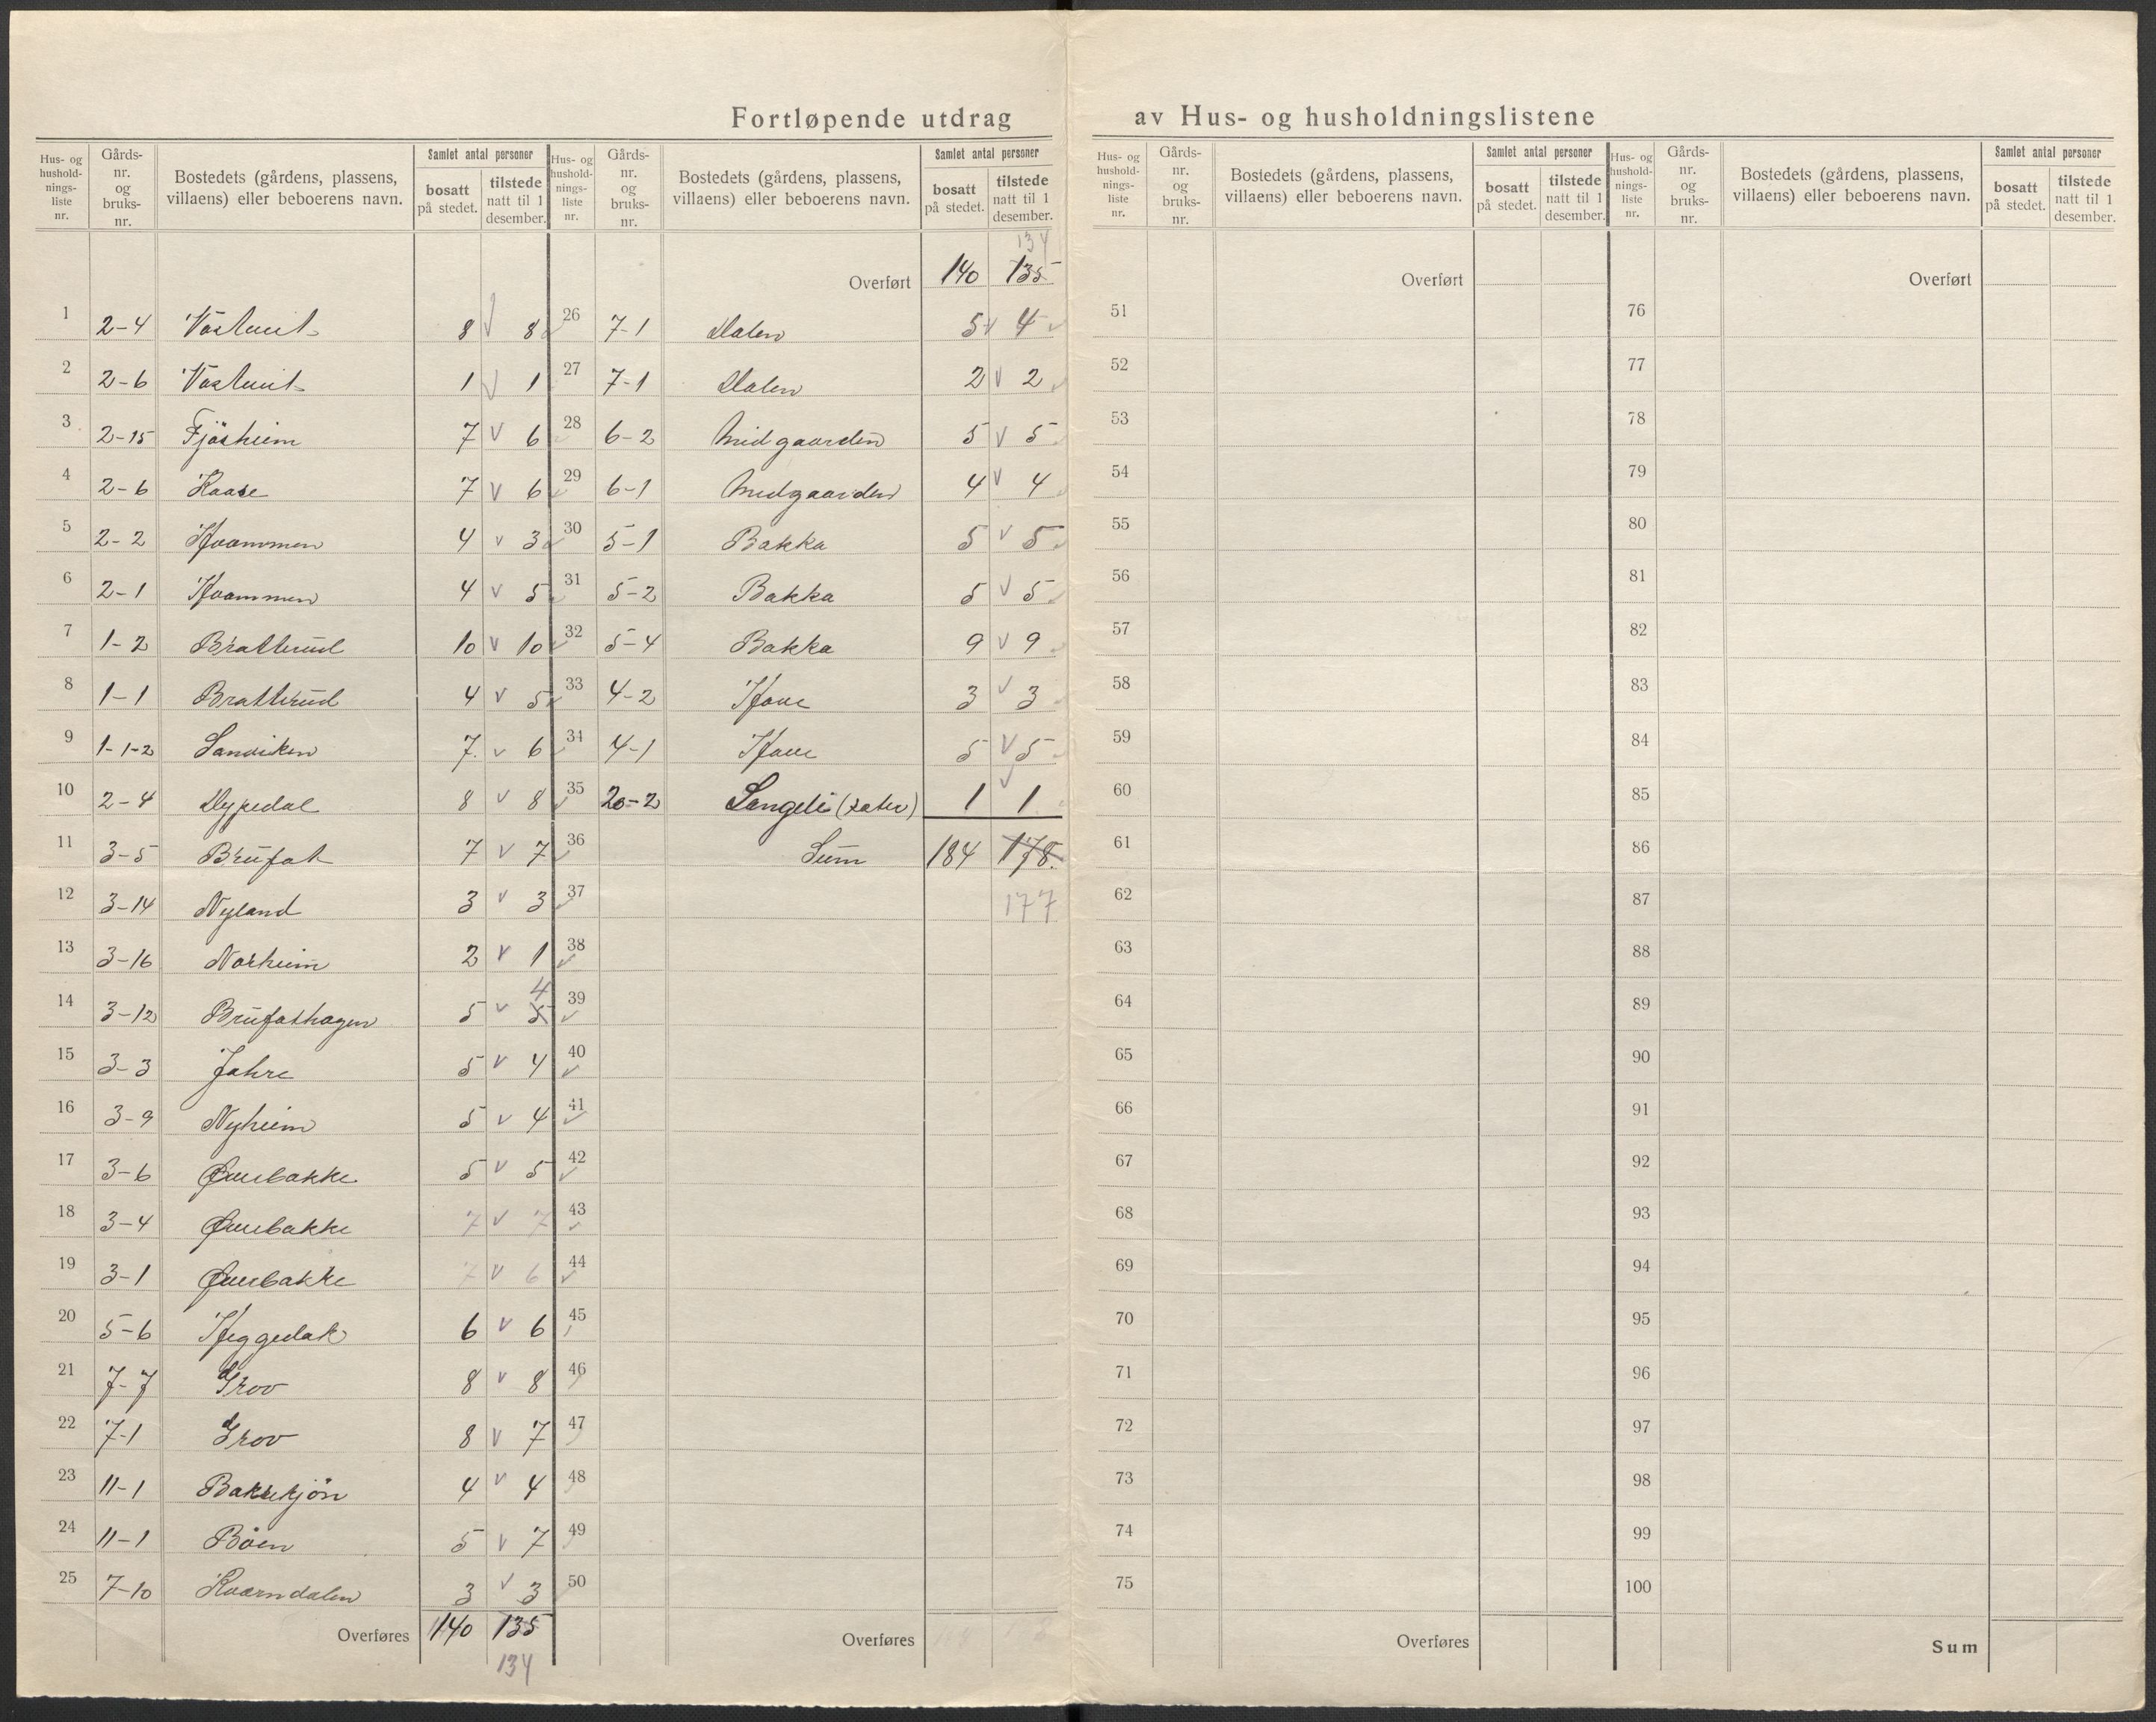 Fortløpende utdrag av Hus- og husholdningslistene
Hus- og hushold- nings- liste nr. | Gårds- nr. og bruks- nr. | Bostedets (gårdens, plassens, villaens) eller beboerens navn. | Samlet antal personer | bosatt på stedet. | tilstede natt til 1 desember.
1 2-4 8 v 8
2 2-6 1 v 1
3 2-15 Fjösheim 7 v 6
4 2-6 Kaase 7 v 6
5 2-2 Hvammen 4 v 3
6 2-1 Hvammen 4 v 5
7 1-2 Bratterud 10 v 10
8 1-1 Bratterud 4 v 5
9 1-1-2 Sanviken 7 v 6
10 2-4 Dypedal 8 v 8
11 3-5 Brufat 7 v 7
12 3-14 Nyland 3 v 3
13 3-16 Norheim 2 v 1
14 3-12 Brufathagen 5 v 5 4
15 3-3 Jahre 5 v 4
16 3-9 Nyheim 5 v 4
17 3-6 Øverbakke 5 v 5
18 3-4 Øverbakke 7 v 7
19 3-1 Øverbakke 7 v 6
20 5-6 Heggedak 6 v 6
21 7-7 Grov 8 v 8
22 7-1 Grov 8 v 7
23 11-1 Bakketjön 4 v 4
24 11-1 Böen 5 v 7
25 7-10 Kværndalen 3 v 3
Overføres 140 135
134
Hus- og hushold- nings- liste nr. | Gårds- nr. og bruks- nr. | Bostedets (gårdens, plassens, villaens) eller beboerens navn. | Samlet antal personer | bosatt på stedet. | tilstede natt til 1 desember.
134
Overført 140 135
26 7-1 Dalen 5 v 4
27 7-1 Dalen 2 v 2
28 6-2 Midgaarden 5 v 5
29 6-1 Midgaarden 4 v 4
30 5-1 Bakka 5 v 5
31 5-2 Bakka 5 v 5
32 5-4 Bakka 9 v 9
33 4-2 Hove 3 v 3
34 4-1 Hove 5 v 5
35 20-2 Langeli (sæter) 1 v 1
36 Sum 184 178
37 177
38
39
40
41
42
43
44
45
46
47
48
49
50
Overføres
Hus- og hushold- nings- liste nr. | Gårds- nr. og bruks- nr. | Bostedets (gårdens, plassens, villaens) eller beboerens navn. | Samlet antal personer | bosatt på stedet. | tilstede natt til 1 desember.
Overført
51
52
53
54
55
56
57
58
59
60
61
62
63
64
65
66
67
68
69
70
71
72
73
74
75
Overføres
Hus- og hushold- nings- liste nr. | Gårds- nr. og bruks- nr. | Bostedets (gårdens, plassens, villaens) eller beboerens navn. | Samlet antal personer | bosatt på stedet. | tilstede natt til 1 desember.
Overført
76
77
78
79
80
81
82
83
84
85
86
87
88
89
90
91
92
93
94
95
96
97
98
99
100
Sum